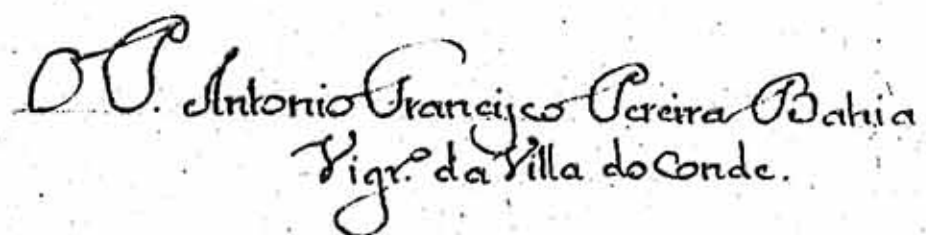 O P. Antonio Francisco Pereira Bahia
Vigr.º da Villa do Conde.